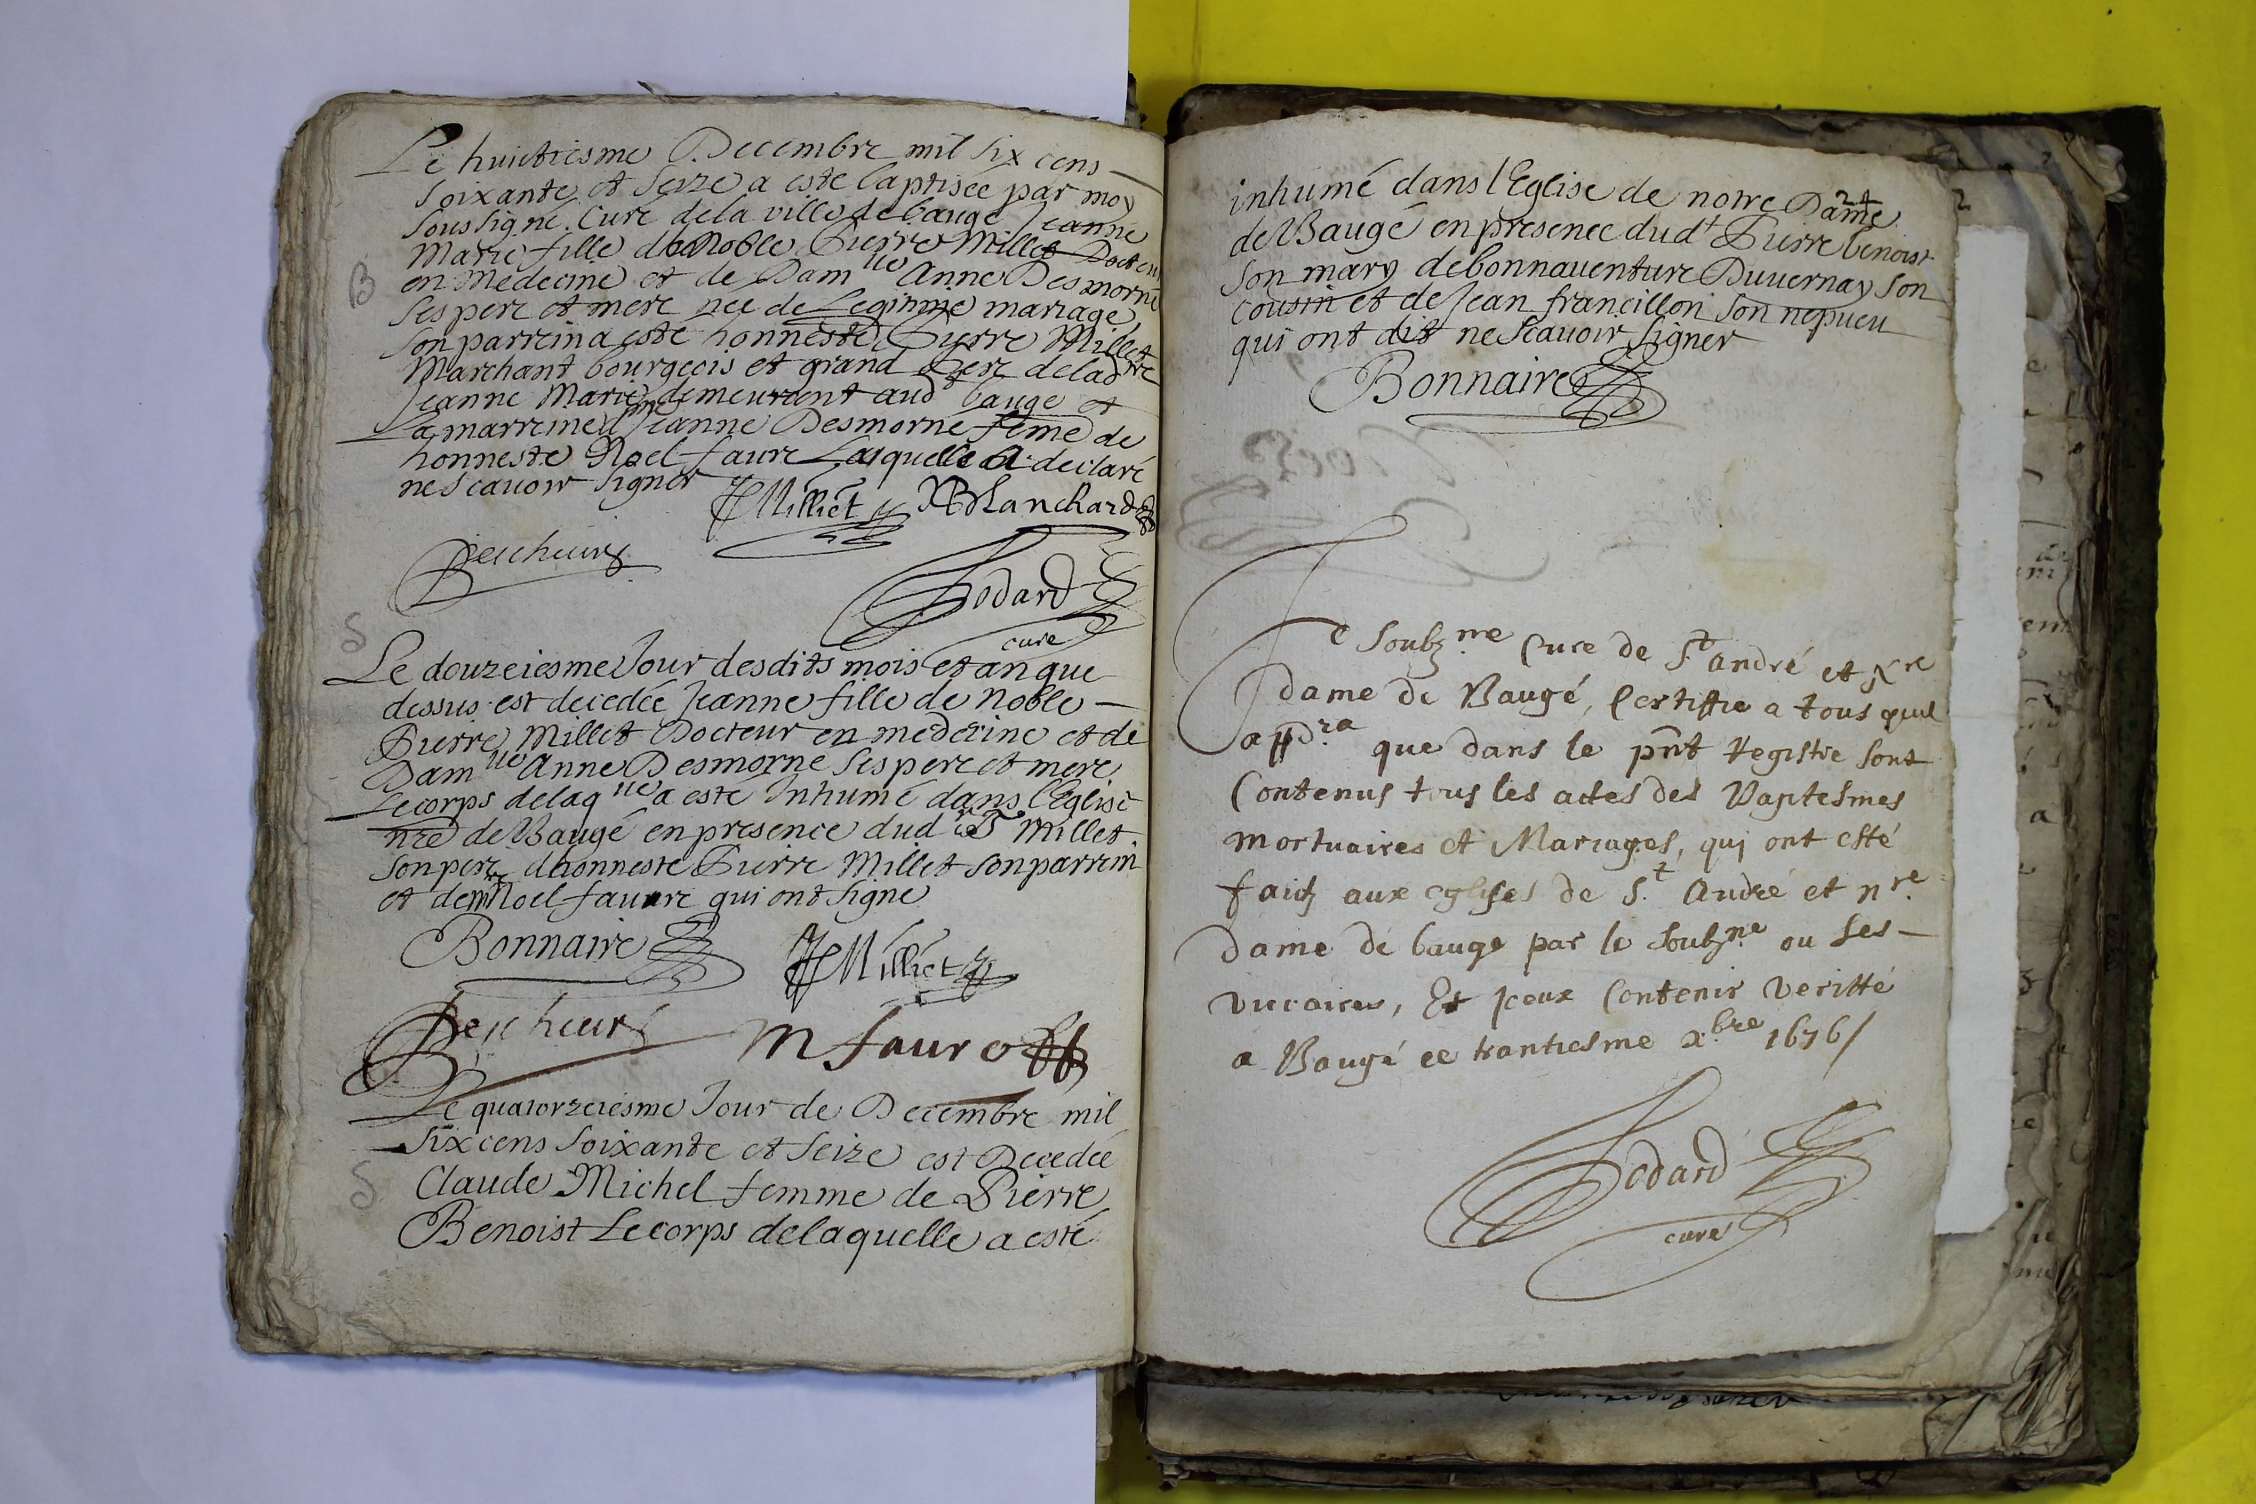 Le huictiesme Decembre mil six cens
soixante et seize a este baptisée par moy
soussigné Curé de la ville de baugé Jeanne
Marie fille de Noble Pierre Millet Docteur
en Medecine et de Dam lle Anne Desmorne
ses pere et mere née de Legitime mariage
son parrein a este honneste Pierre Millet
Marchant bourgeois et grand Pere de lad
Jeanne Marie demeurent aud baugé et
La marreine Jeanne Desmorne feme de
honneste Noel faure Laquelle a declaré
ne scavoir signer
B
Milliet Blanchard
Descheurs
Fodard
cure
S
Le douzeiesme Jour desdits mois et an que
dessus est decedée Jeanne fille de Noble
Pierre Millet Docteur en medecine et de
Dam lle Anne Desmorne ses pere et mere
Le corps de laq lle a este Inhumé dans l'Eglise
nre de Baugé en presence dud Sr Millet
son pere de honneste Pierre Millet son parrein
et de Noel faure qui ont signe
Bonnaire Milliet
Descheurs m faure
Le quatorzeiesme Jour de Decembre mil
six cens soixante et seize est Decedée
S
Claude Michel femme de Pierre
Benoist Le corps de laquelle a esté
24
inhumé dans l'Eglise de notre Dame
de Baugé en presence dud t Pierre benoist
son mary de bonnauenture Duuernay son
cousin et de Jean francillon son nepueu
qui ont dit ne scauoir signer
Bonnaire
Je soubz.ne Cure de S.t andré et N.re
dame de Baugé, Certiffie a tous quil
appd.ra que dans le pnt Registre sont
Contenus tous les actes des Baptesmes
mortuaires et Mariages, qui ont esté
faictz aux eglises de S.t André et n.re
dame de bauge par le soubz.ne ou ses
vicaires, Et Iceux Contenir veritté
a Baugé ce trantiesme x.bre 1676/
Fodard
curé